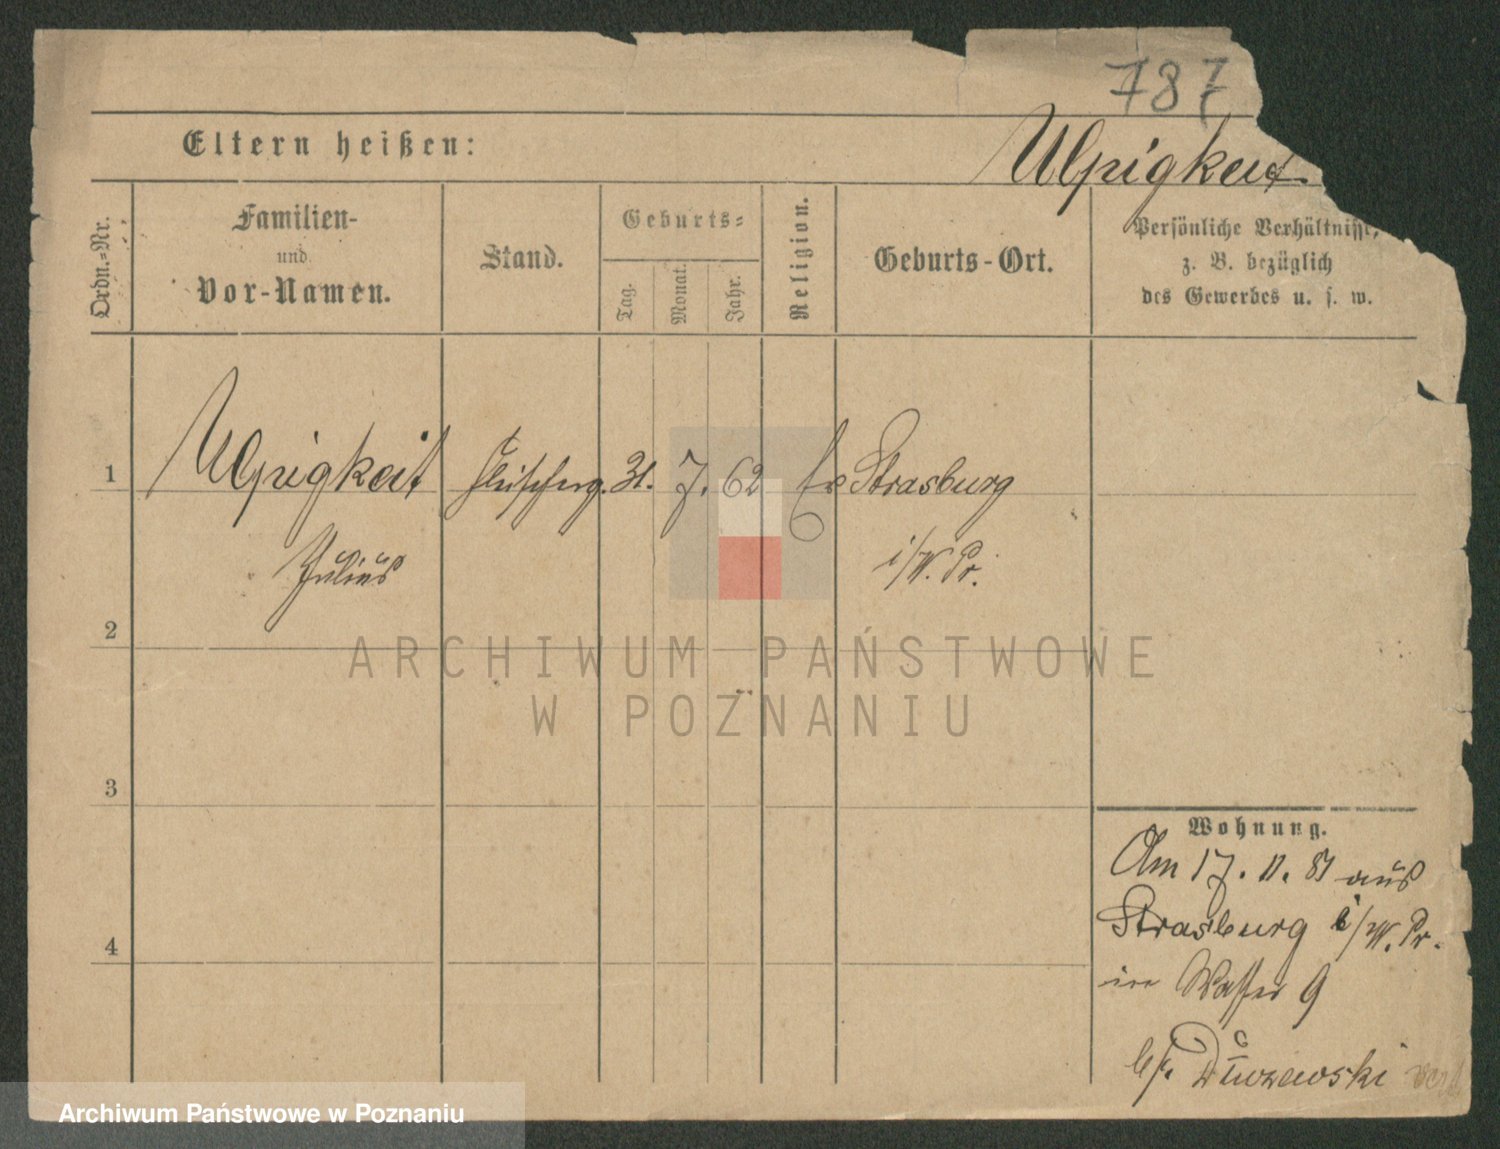 787
Eltern heißen:
Ulpigkeit.
Ordn.=Nr.
Familien-
und
Vor-Namen.
Stand.
Geburts=
Tag.
Monat.
Jahr.
Religion.
Geburts-Ort.
Persönliche Verhältnisse,
z. B. bezüglich
des Gewerbes u. s. w.
1
Ulpigkeit
Fleischerg. 31. 7. 62
Ev
Strasburg
Julius
i/W. Pr.
2
ARCHIWUM PAŃSTWOWE
W POZNANIU
3
4
Wohnung.
Am 17. 11. 81 aus
Strasburg i/W. Pr.
in Wasser 9
b/
Archiwum Państwowe w Poznaniu